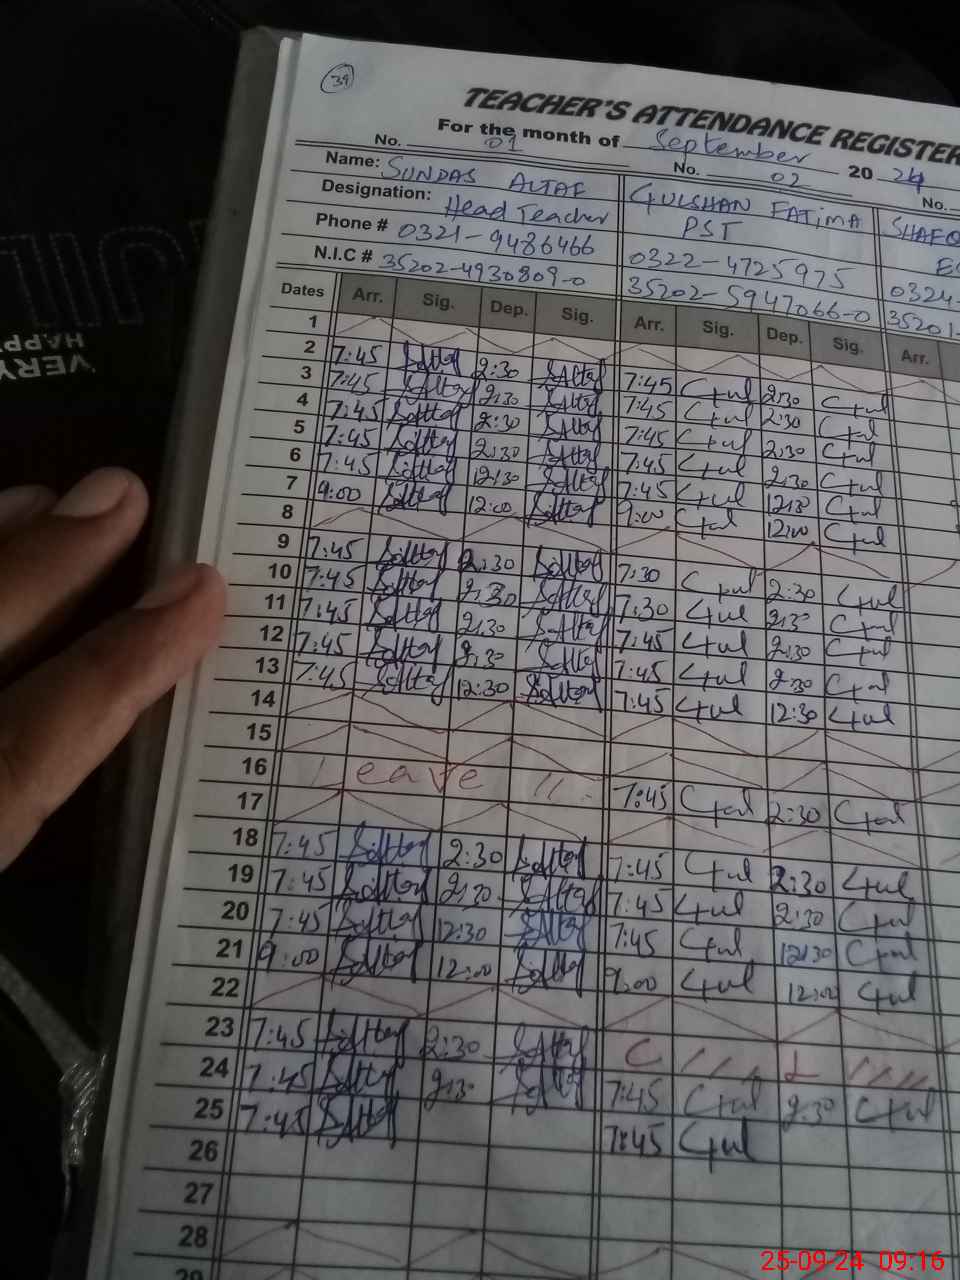 39
TEACHER'S ATTENDANCE REGISTER
For the month of September 20 24
No. 01 No. 02 No.
Name: SUNDAS ALTAF GULSHAN FATIMA
Designation: Head Teacher PST
Phone # 0321-9486466 0322-4725975 0324-
N.I.C # 35202-4930809-0 35202-5947066-0 35201-
Dates Arr. Sig. Dep. Sig. Arr. Sig. Dep. Sig. Arr.
1
2 7:45 SAltaf 2:30 SAltaf 7:45 Gul 2:30 Gul
3 7:45 SAltaf 2:30 SAltaf 7:45 Gul 2:30 Gul
4 7:45 SAltaf 2:30 SAltaf 7:45 Gul 2:30 Gul
5 7:45 SAltaf 2:30 SAltaf 7:45 Gul 2:30 Gul
6 7:45 SAltaf 12:30 SAltaf 7:45 Gul 12:30 Gul
7 9:00 SAltaf 12:00 SAltaf 9:00 Gul 12:00 Gul
8
9 7:45 SAltaf 2:30 SAltaf 7:30 Gul 2:30 Gul
10 7:45 SAltaf 2:30 SAltaf 7:30 Gul 2:30 Gul
11 7:45 SAltaf 2:30 SAltaf 7:45 Gul 2:30 Gul
12 7:45 SAltaf 2:30 SAltaf 7:45 Gul 2:30 Gul
13 7:45 SAltaf 12:30 SAltaf 7:45 Gul 12:30 Gul
14
15
16 Leave 7:45 Gul 2:30 Gul
17
18 7:45 SAltaf 2:30 SAltaf 7:45 Gul 2:30 Gul
19 7:45 SAltaf 2:30 SAltaf 7:45 Gul 2:30 Gul
20 7:45 SAltaf 12:30 SAltaf 7:45 Gul 12:30 Gul
21 9:00 SAltaf 12:00 SAltaf 9:00 Gul 12:00 Gul
22
23 7:45 SAltaf 2:30 SAltaf C L
24 7:45 SAltaf 2:30 SAltaf 7:45 Gul 2:30 Gul
25 7:45 SAltaf 7:45 Gul
26
27
28
29
VERY
HAPPY
25-09-24 09:16